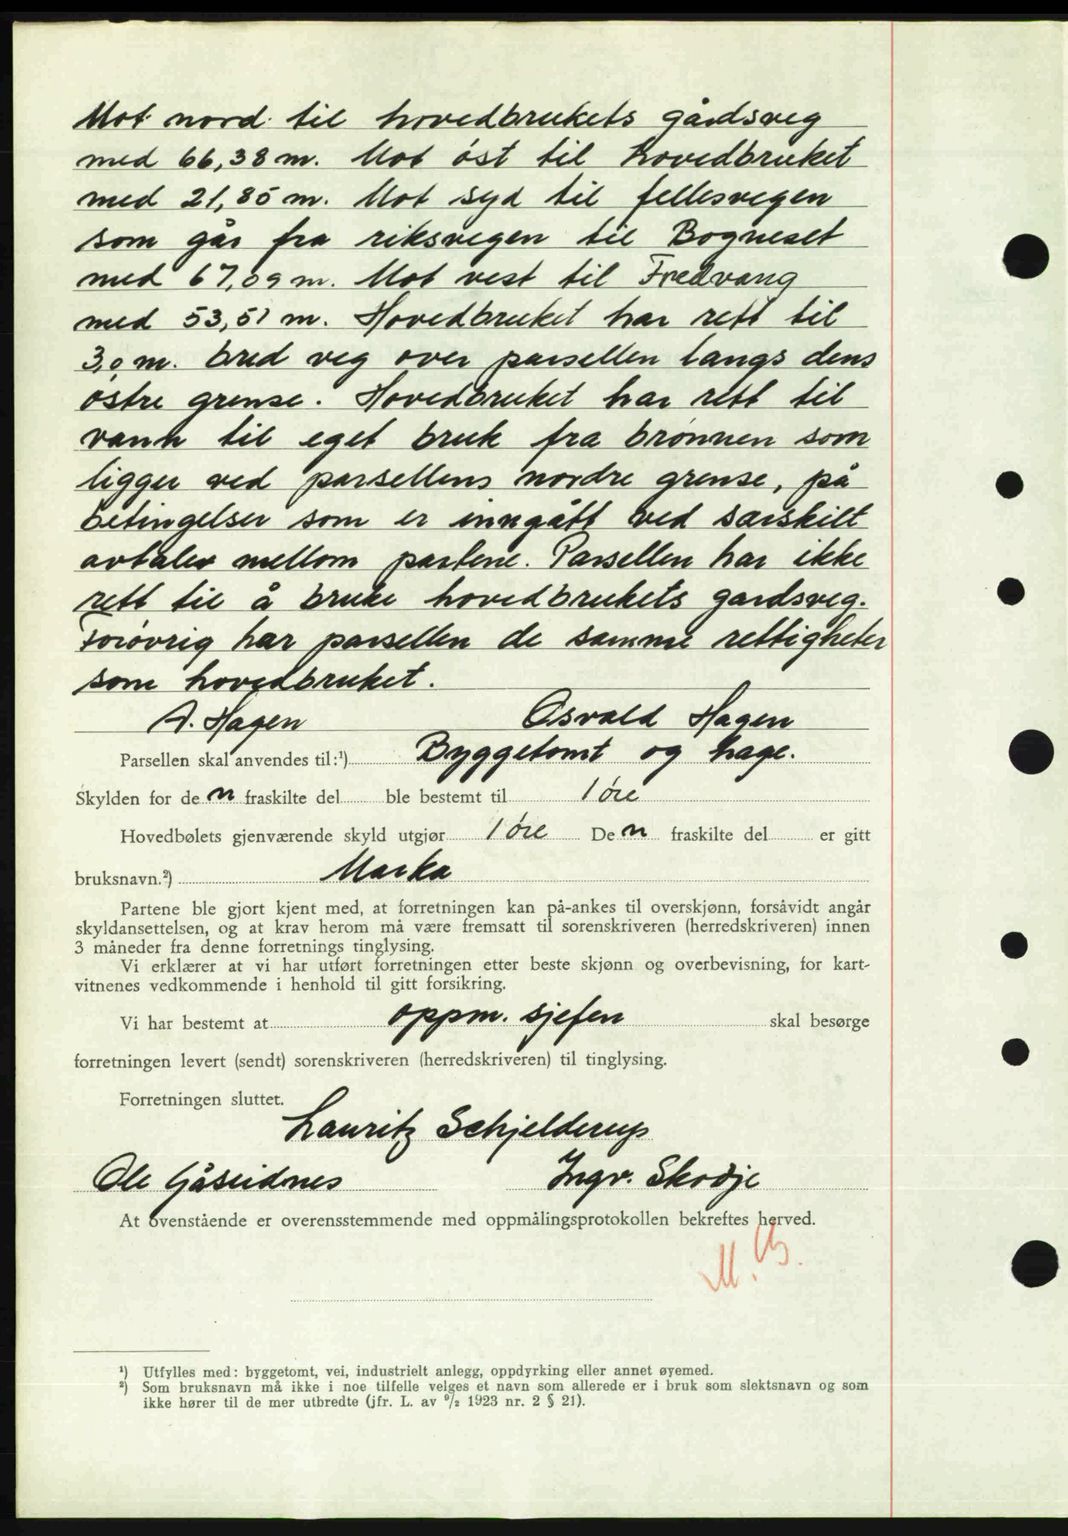 Mot nord til hovedbrukets gårdsveg
med 66,38 m. Mot øst til hovedbruket
med 21,85 m. Mot syd til fellesvegen
som går fra riksvegen til Bogneset
med 67,09 m. Mot vest til Fredvang
med 53,51 m. Hovedbruket har rett til
3,0 m. bred veg over parsellen langs dens
østre grense. Hovedbruket har rett til
vann til eget bruk fra brønnen som
ligger ved parsellens nordre grense, på
betingelser som er inngått ved særskilt
avtaler mellom partene. Parsellen har ikke
rett til å bruke hovedbrukets gardsveg.
Forøvrig har parsellen de samme rettigheter
som hovedbruket.
A. Hagen Osvald Hagen
Parsellen skal anvendes til:¹) Byggetomt og hage.
Skylden for de n fraskilte del ble bestemt til 1 øre
Hovedbølets gjenværende skyld utgjør 1 øre De n fraskilte del er gitt
bruksnavn.²) Marka
Partene ble gjort kjent med, at forretningen kan på-ankes til overskjønn, forsåvidt angår
skyldansettelsen, og at krav herom må være fremsatt til sorenskriveren (herredskriveren) innen
3 måneder fra denne forretnings tinglysing.
Vi erklærer at vi har utført forretningen etter beste skjønn og overbevisning, for kart-
vitnenes vedkommende i henhold til gitt forsikring.
Vi har bestemt at oppm. sjefen skal besørge
forretningen levert (sendt) sorenskriveren (herredskriveren) til tinglysing.
Forretningen sluttet.
Lauritz Schjelderup
Ole Gåseidnes Ingv. Skodje
At ovenstående er overensstemmende med oppmålingsprotokollen bekreftes herved.
¹) Utfylles med: byggetomt, vei, industrielt anlegg, oppdyrking eller annet øyemed.
²) Som bruksnavn må ikke i noe tilfelle velges et navn som allerede er i bruk som slektsnavn og som
ikke hører til de mer utbredte (jfr. L. av ⁹/₂ 1923 nr. 2 § 21).